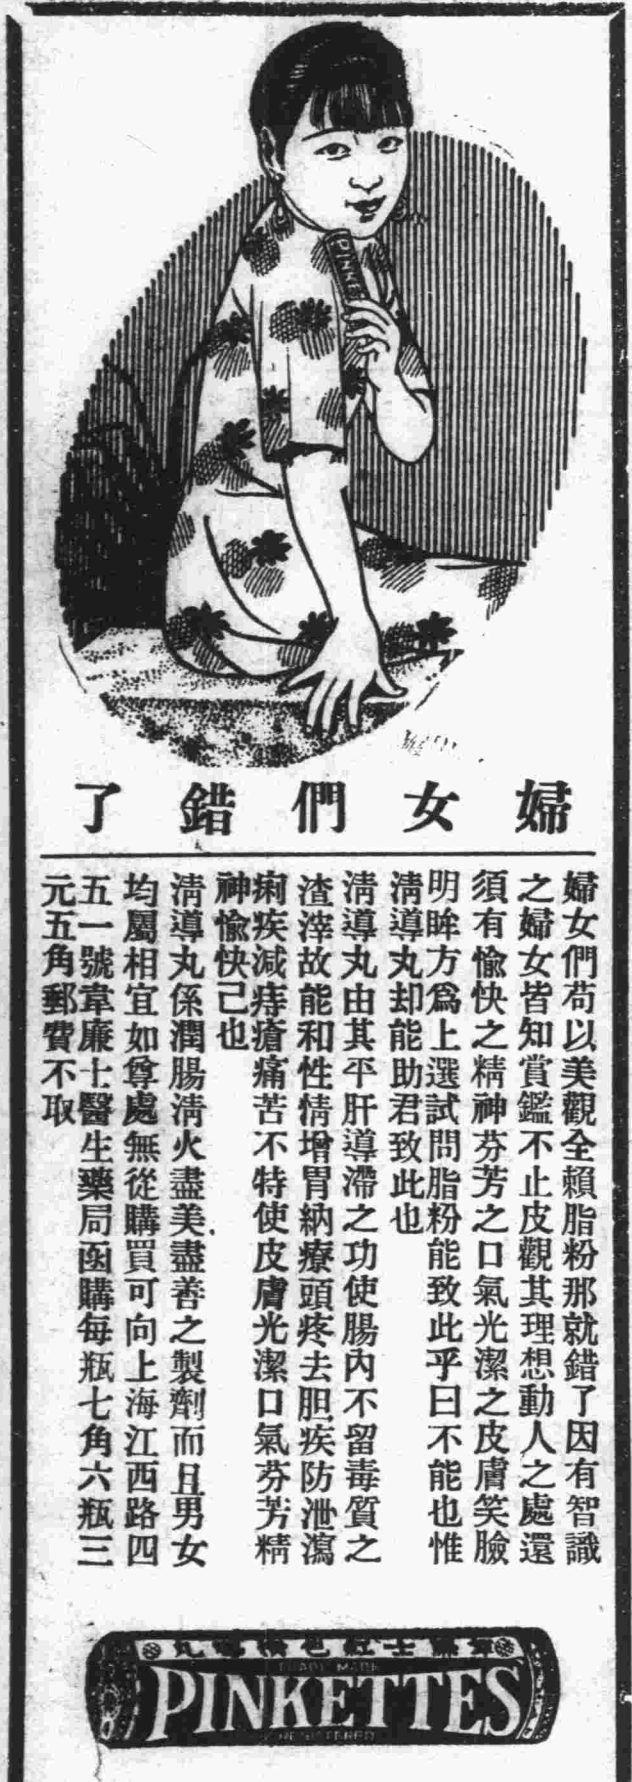 PINKE
婦女們錯了
婦女們苟以美觀全賴脂粉那就錯了因有智識
之婦女皆知賞鑑不止皮觀其理想動人之處還
須有愉快之精神芬芳之口氣光潔之皮膚笑臉
明眸方爲上選試問脂粉能致此乎曰不能也惟
淸導丸却能助君致此也
淸導丸由其平肝導滯之功使腸內不留毒質之
渣滓故能和性情增胃納療頭疼去胆疾防泄瀉
痢疾減痔瘡痛苦不特使皮膚光潔口氣芬芳精
神愉快己也
淸導丸係潤腸淸火盡美盡善之製劑而且男女
均屬相宜如尊處無從購買可向上海江西路四
五一號韋廉士醫生藥局函購每瓶七角六瓶三
元五角郵費不取
士紅色
TRADE MARK
PINKETTES
REGISTERED